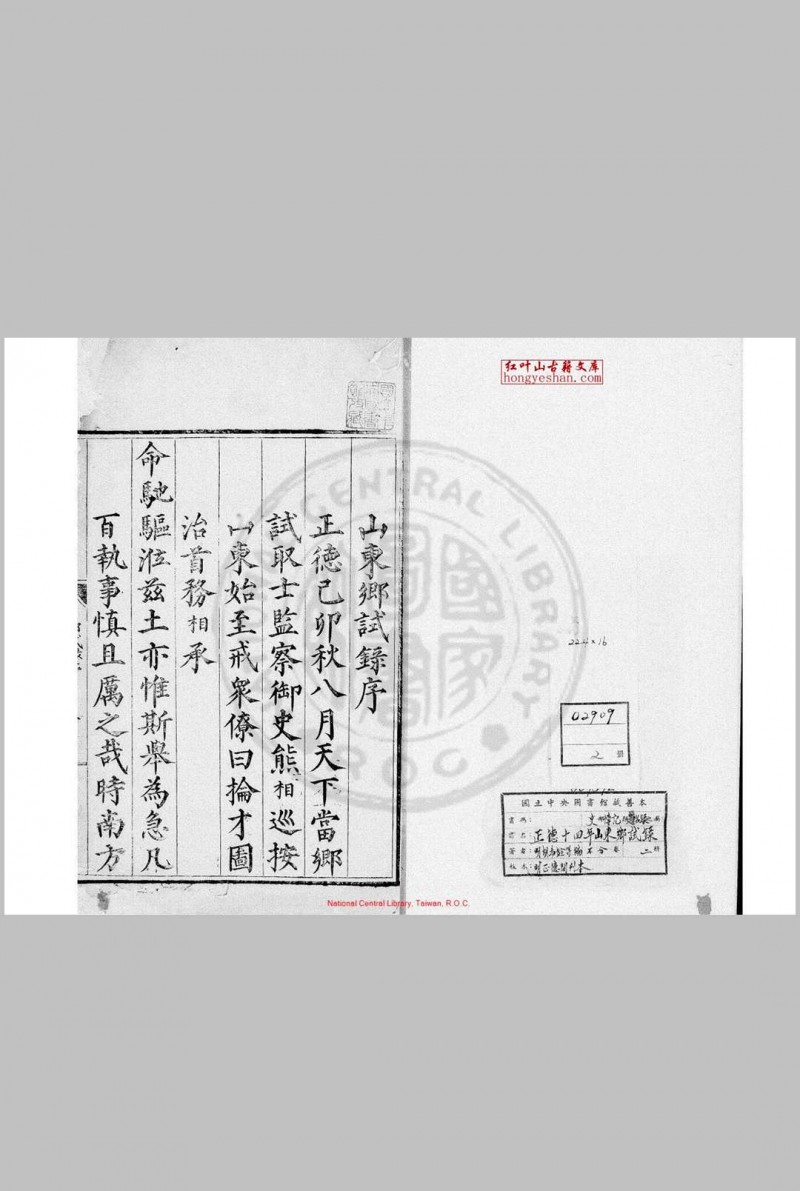 山東鄉試錄序
正德己卯秋八月天下當鄉
試取士監察御史熊相巡按
山東始至戒衆僚曰掄才圖
治首務相承
命馳驅涖茲土亦惟斯舉為急凡
百執事慎且厲之哉時南方
红叶山古籍文库
hongyeshan.com
CENTRAL LIBRARY
R.O.C
國家
圖
22.4×16
02909
2 冊
國立中央圖書館藏善本
正德十四年山東鄉試錄
National Central Library, Taiwan, R.O.C.